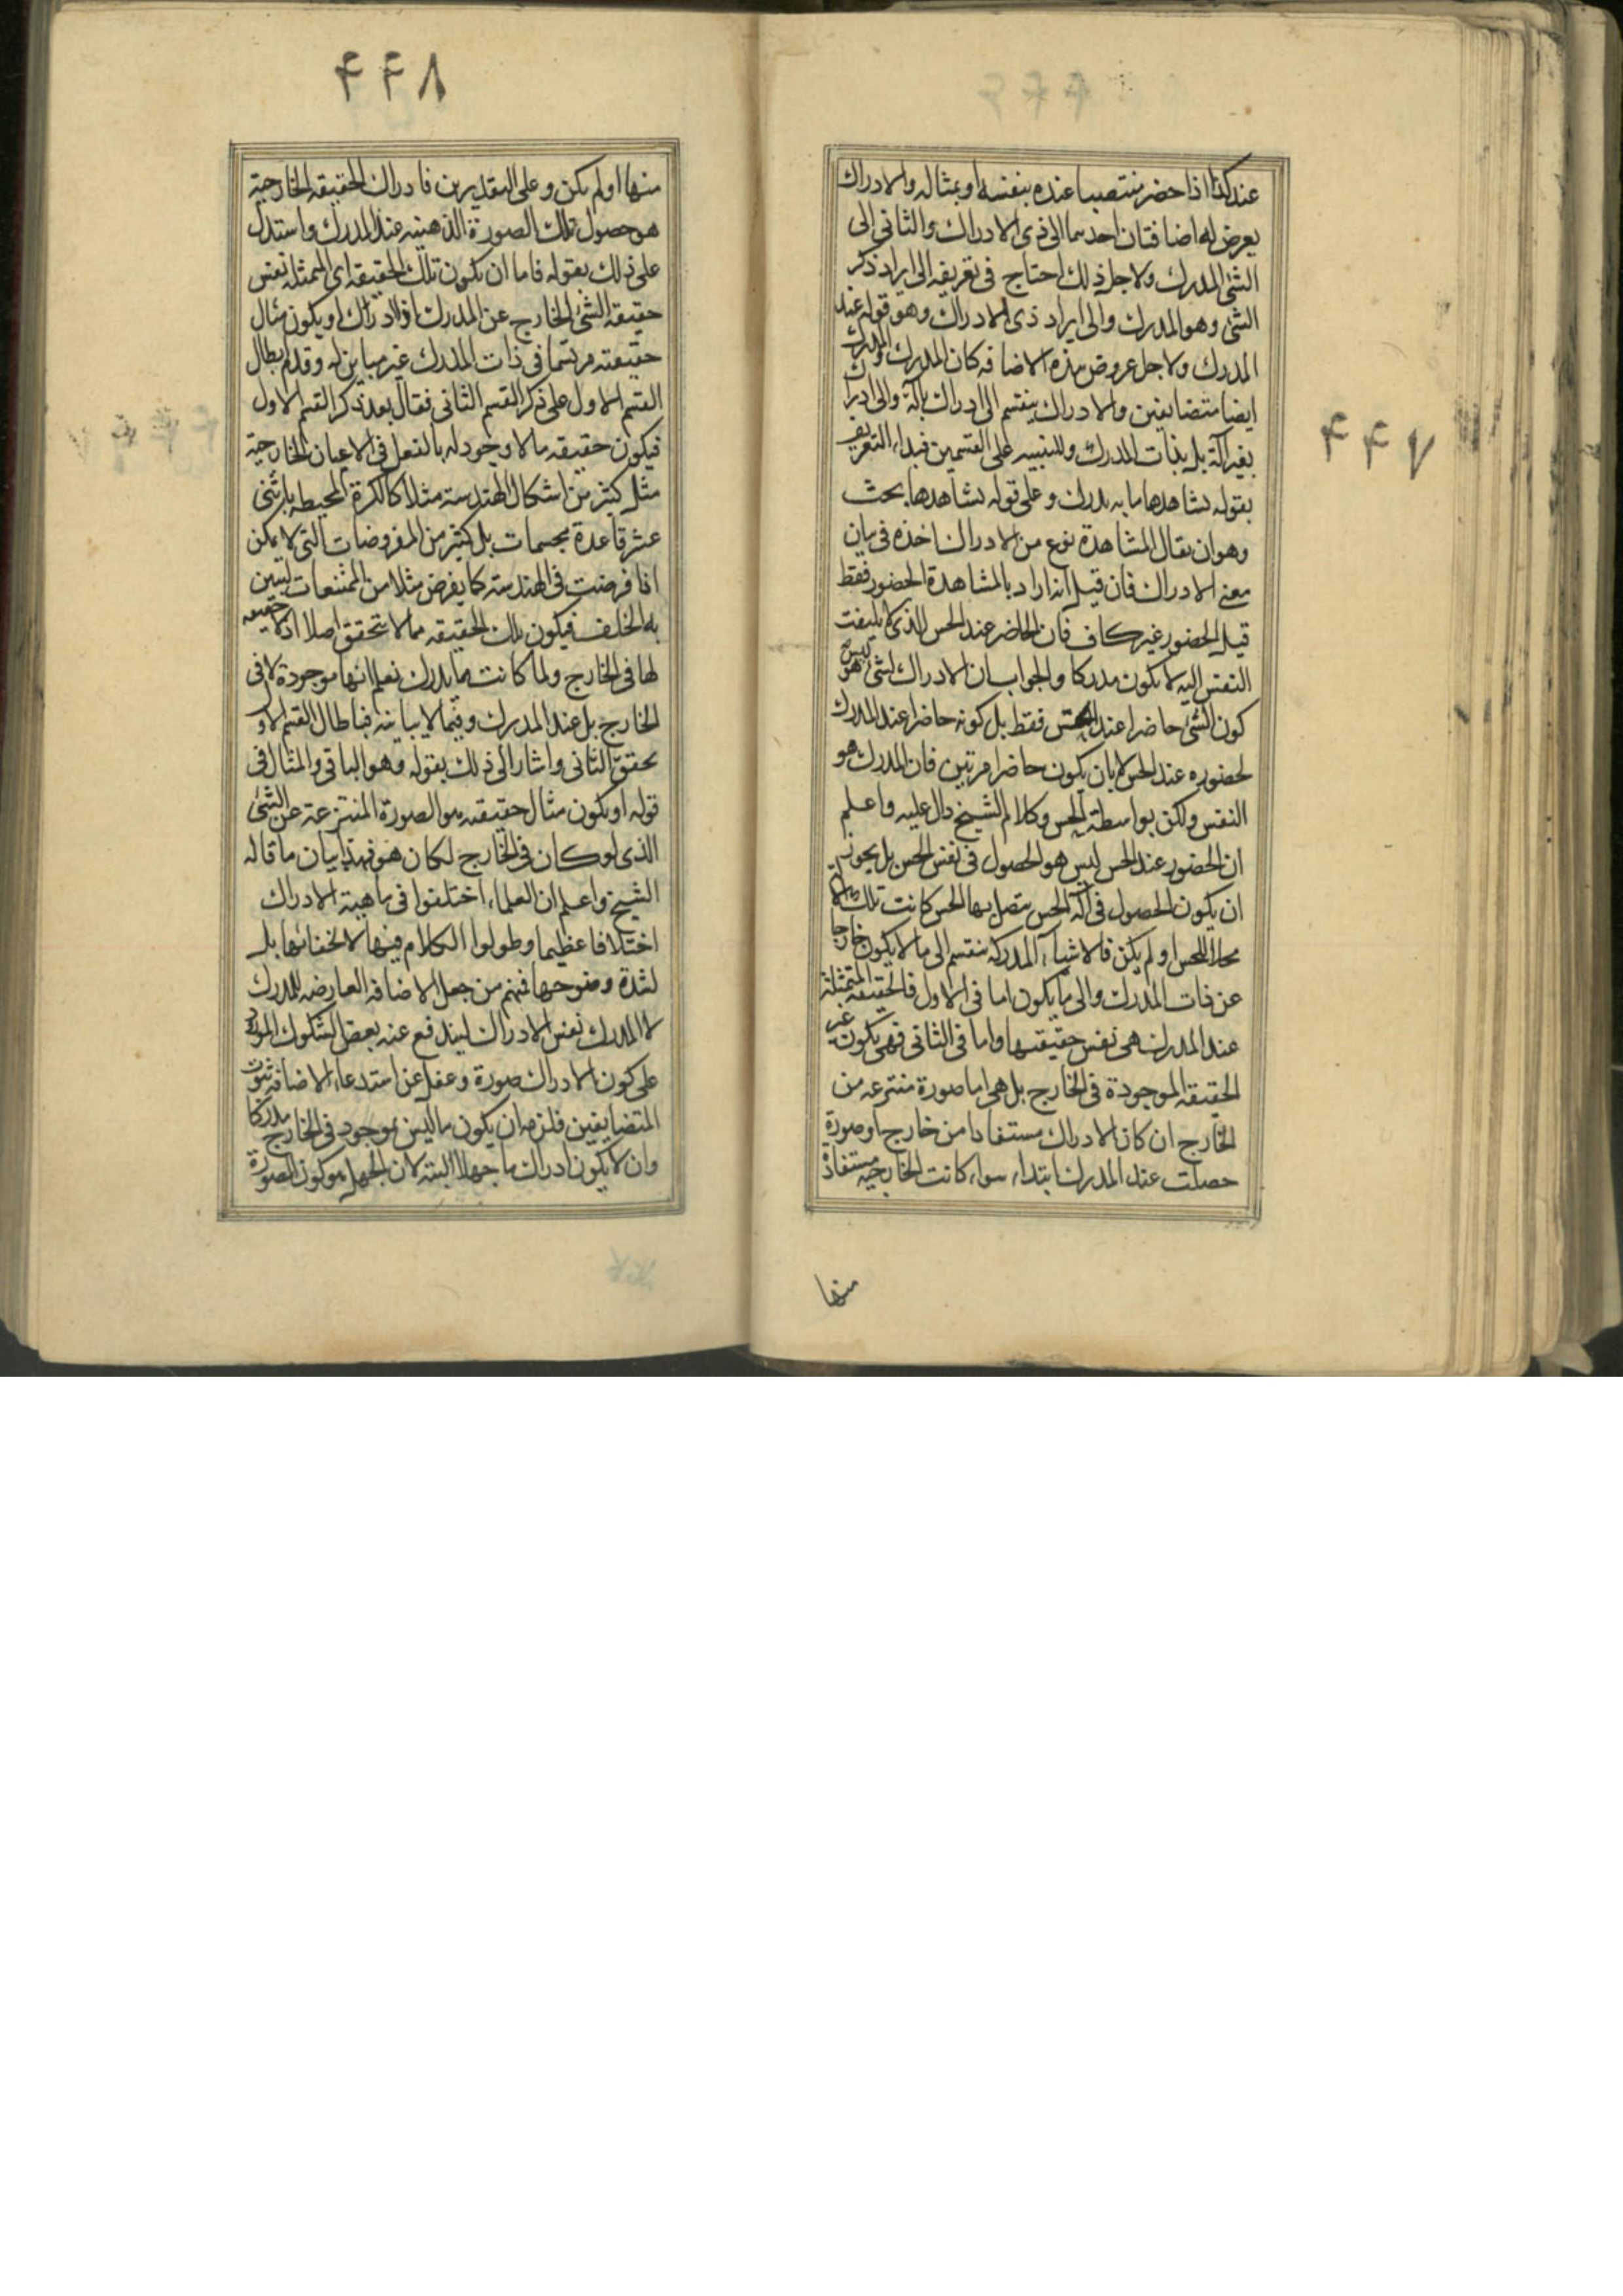 ۴۴۷
عند كذا اذا حضر منتصبا عنده بنفسه او بمثاله والادراك
يعرض له اضافتان احدهما الى ذى الادراك والثانى الى
الشئ المدرك ولاجل ذلك احتاج فى تعريفه الى ايراد ذكر
الشئ وهو المدرك والى ايراد ذى الادراك وهو قوله عند
المدرك ولاجل عروض هذه الاضافه كان المدرك والمدرك
ايضا متضايفين والادراك ينقسم الى ادراك بالة والى ادراك
بغير آلة بل بذات المدرك وللتنبيه على القسمين قيد التعريف
بقوله يشاهدها ما به يدرك وعلى قوله يشاهدها بحث
وهو ان يقال المشاهدة نوع من الادراك اخذه فى بيان
معنى الادراك فان قيل انه اراد بالمشاهدة الحضور فقط
قيل الحضور غير كاف فان الحاضر عند الحس الذى لا يلتفت
النفس اليه لا يكون مدركا والجواب ان الادراك ليس هو
كون الشئ حاضرا عند الحس فقط بل كونه حاضرا عند المدرك
لحضوره عند الحس لا بان يكون حاضرا مرتين فان المدرك هو
النفس ولكن بواسطة الحس وكلام الشيخ دال عليه واعلم
ان الحضور عند الحس ليس هو الحصول فى نفس الحس بل يجوز
ان يكون الحصول فى آلة الحس يتصل بها الحس كانت تلك الآلة
محلا للحس او لم يكن فالاشياء المدركة تنقسم الى ما لا يكون خارجا
عن ذات المدرك والى ما يكون اما فى الاول فالحقيقه المتمثلة
عند المدرك هى نفس حقيقتها واما فى الثانى فهى يكون غير
الحقيقه الموجودة فى الخارج بل هى اما صورة منتزعه من
الخارج ان كان الادراك مستفادا من خارج او صورة
حصلت عند المدرك ابتداء سواء كانت الخارجيه مستفادة
منها
۴۴۸
منها او لم يكن وعلى التقديرين فادراك الحقيقه الخارجية
هو حصول تلك الصورة الذهنيه عند المدرك واستدل
على ذلك بقوله فاما ان يكون تلك الحقيقه اى المتمثله نفس
حقيقه الشئ الخارج عن المدرك اذا ادرك او يكون مثال
حقيقته مرتسما فى ذات المدرك غير مباين له وقدم ابطال
القسم الاول على ذكر القسم الثانى فقال بعد ذكر القسم الاول
فيكون حقيقه ما لا وجود له بالفعل فى الاعيان الخارجية
مثل كثير من اشكال الهندسة مثلا كالكرة المحيطه باثنى
عشر قاعدة مجسمات بل كثير من المفروضات التى لا يمكن
اذا فرضت فى الهندسة كما يفرض مثلا من الممتنعات ليتبين
به الخلف فيكون تلك الحقيقه مما لا يتحقق اصلا اذ لا حقيقه
لها فى الخارج ولما كانت مما يدرك نعلم انها موجودة لا فى
الخارج بل عند المدرك وفيما لا يباينه فبابطال القسم الاول
تحقق الثانى واشار الى ذلك بقوله وهو الباقى والمثال فى
قوله او يكون مثال حقيقته هو الصورة المنتزعة عن الشئ
الذى لو كان فى الخارج لكان هو فهذا بيان ما قاله
الشيخ واعلم ان العلماء اختلفوا فى ماهية الادراك
اختلافا عظيما وطولوا الكلام فيها لا لخفائها بل
لشدة وضوحها فمنهم من جعل الاضافه العارضه للمدرك
لا المدرك نفس الادراك ليندفع عنه بعض الشكوك المورد
على كون الادراك صورة وغفل عن استدعاء الاضافه ثبوت
المتضايفين فلزمه ان يكون ما ليس بموجود فى الخارج مدركا
وان لا يكون ادراك ما جهلا البته لان الجهل هو كون الصورة